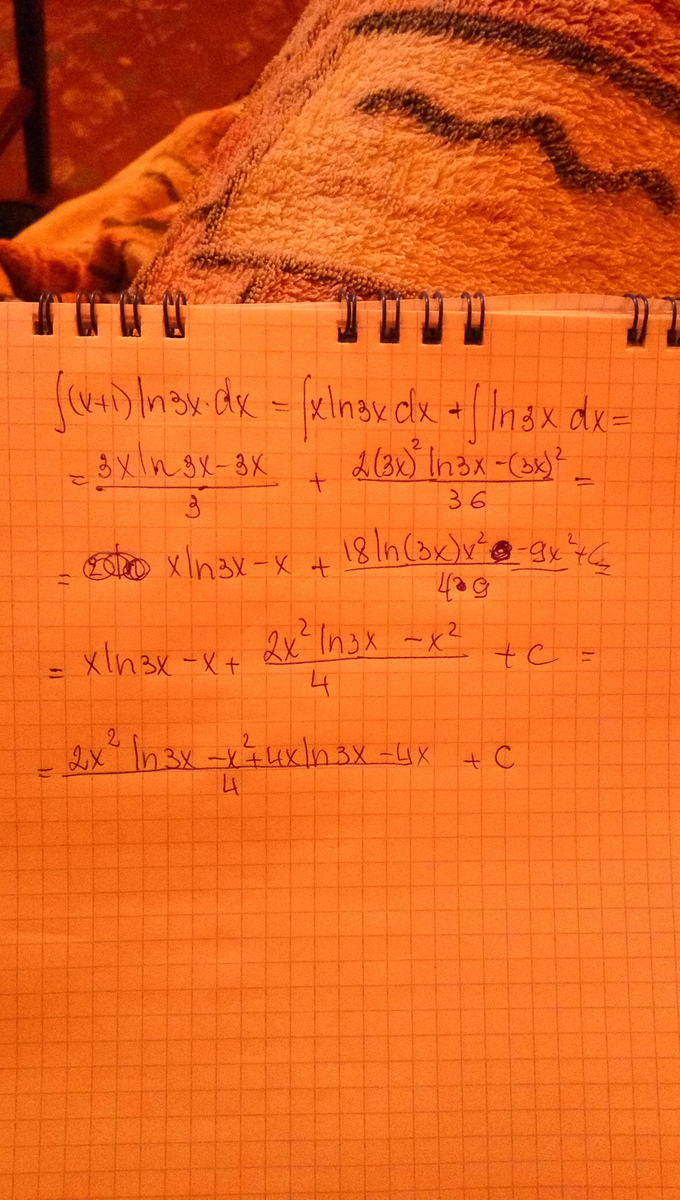 ∫(x+1)ln3x·dx = ∫xln3x dx + ∫ln3x dx =
= (3xln3x-3x)/3 + (2(3x)²ln3x-(3x)²)/36 =
= xln3x-x + (18ln(3x)x² -9x²+C)/(4·9) =
= xln3x-x+ (2x²ln3x -x²)/4 +C =
= (2x²ln3x -x²+4xln3x-4x)/4 +C